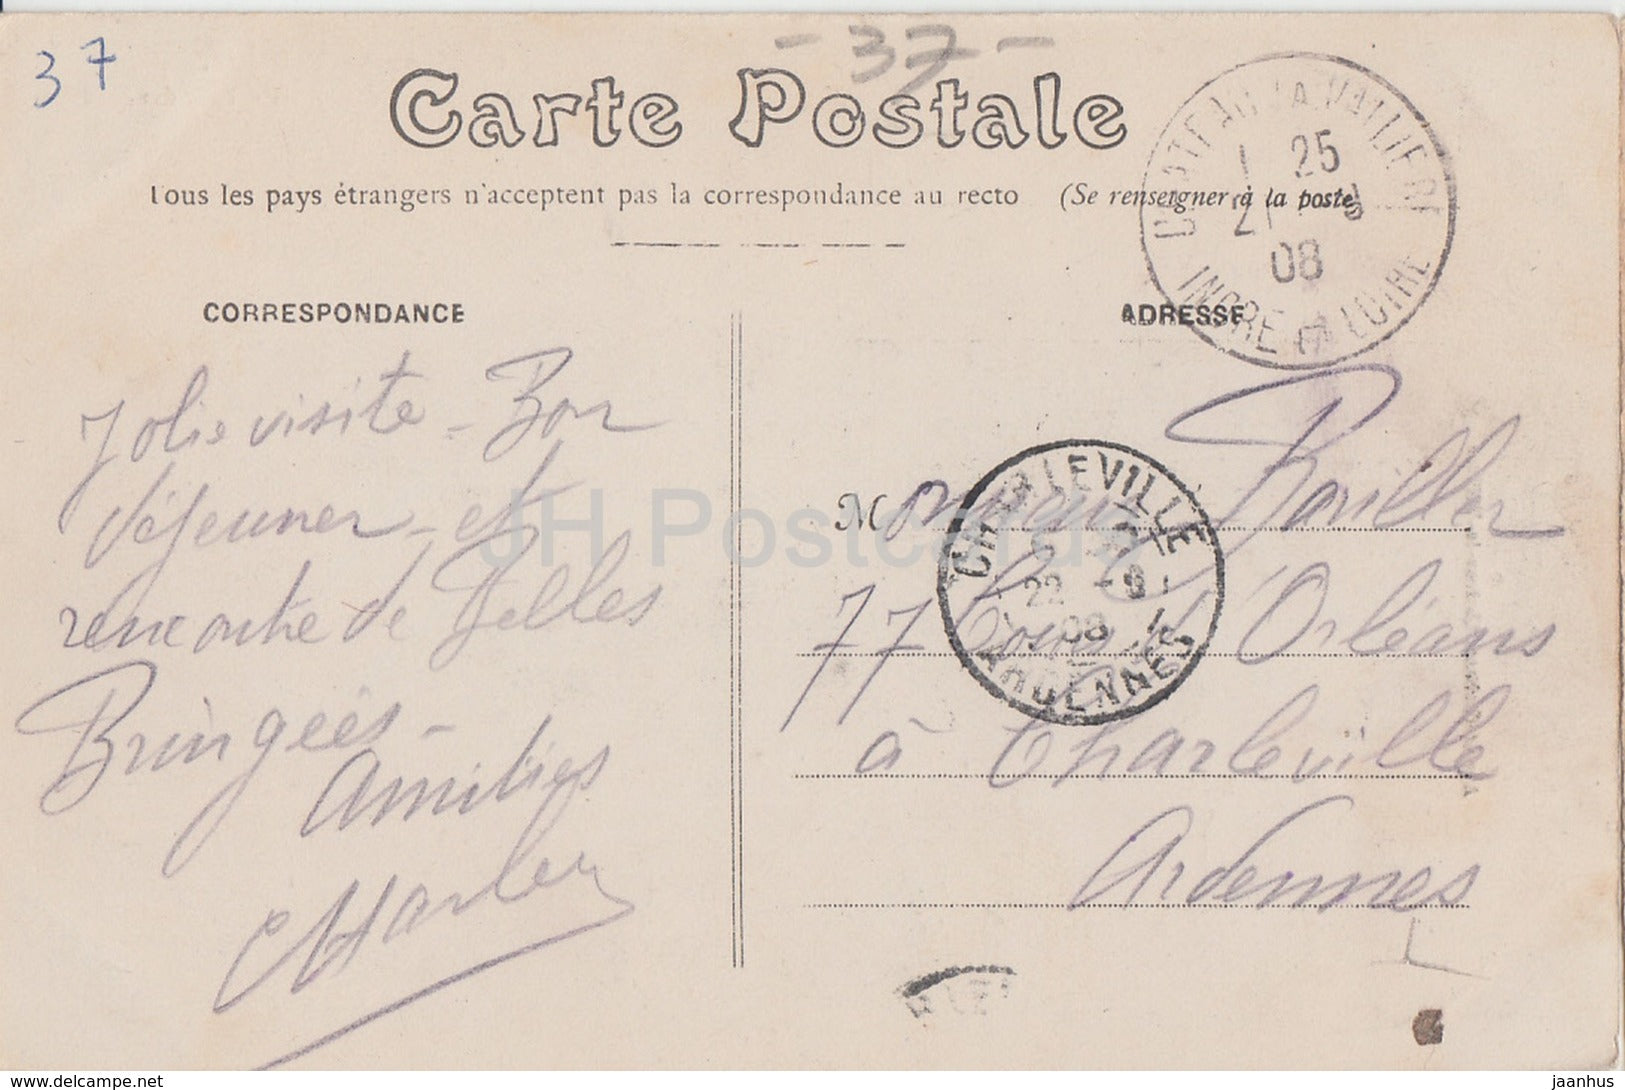 37
- 37 -
Carte Postale
Tous les pays étrangers n'acceptent pas la correspondance au recto (Se renseigner à la poste)
CHATEAU LA VALLIERE
25
21
08
INDRE ET LOIRE
CORRESPONDANCE
ADRESSE
Jolie visite - Bon
déjeuner - et
rencontre de Belles
Amitiés
Monsieur
77 Cours d'Orléans
à Charleville
Ardennes
CHARLEVILLE
22
08
ARDENNES
JH Postcards
delcampe.net
jaanhus